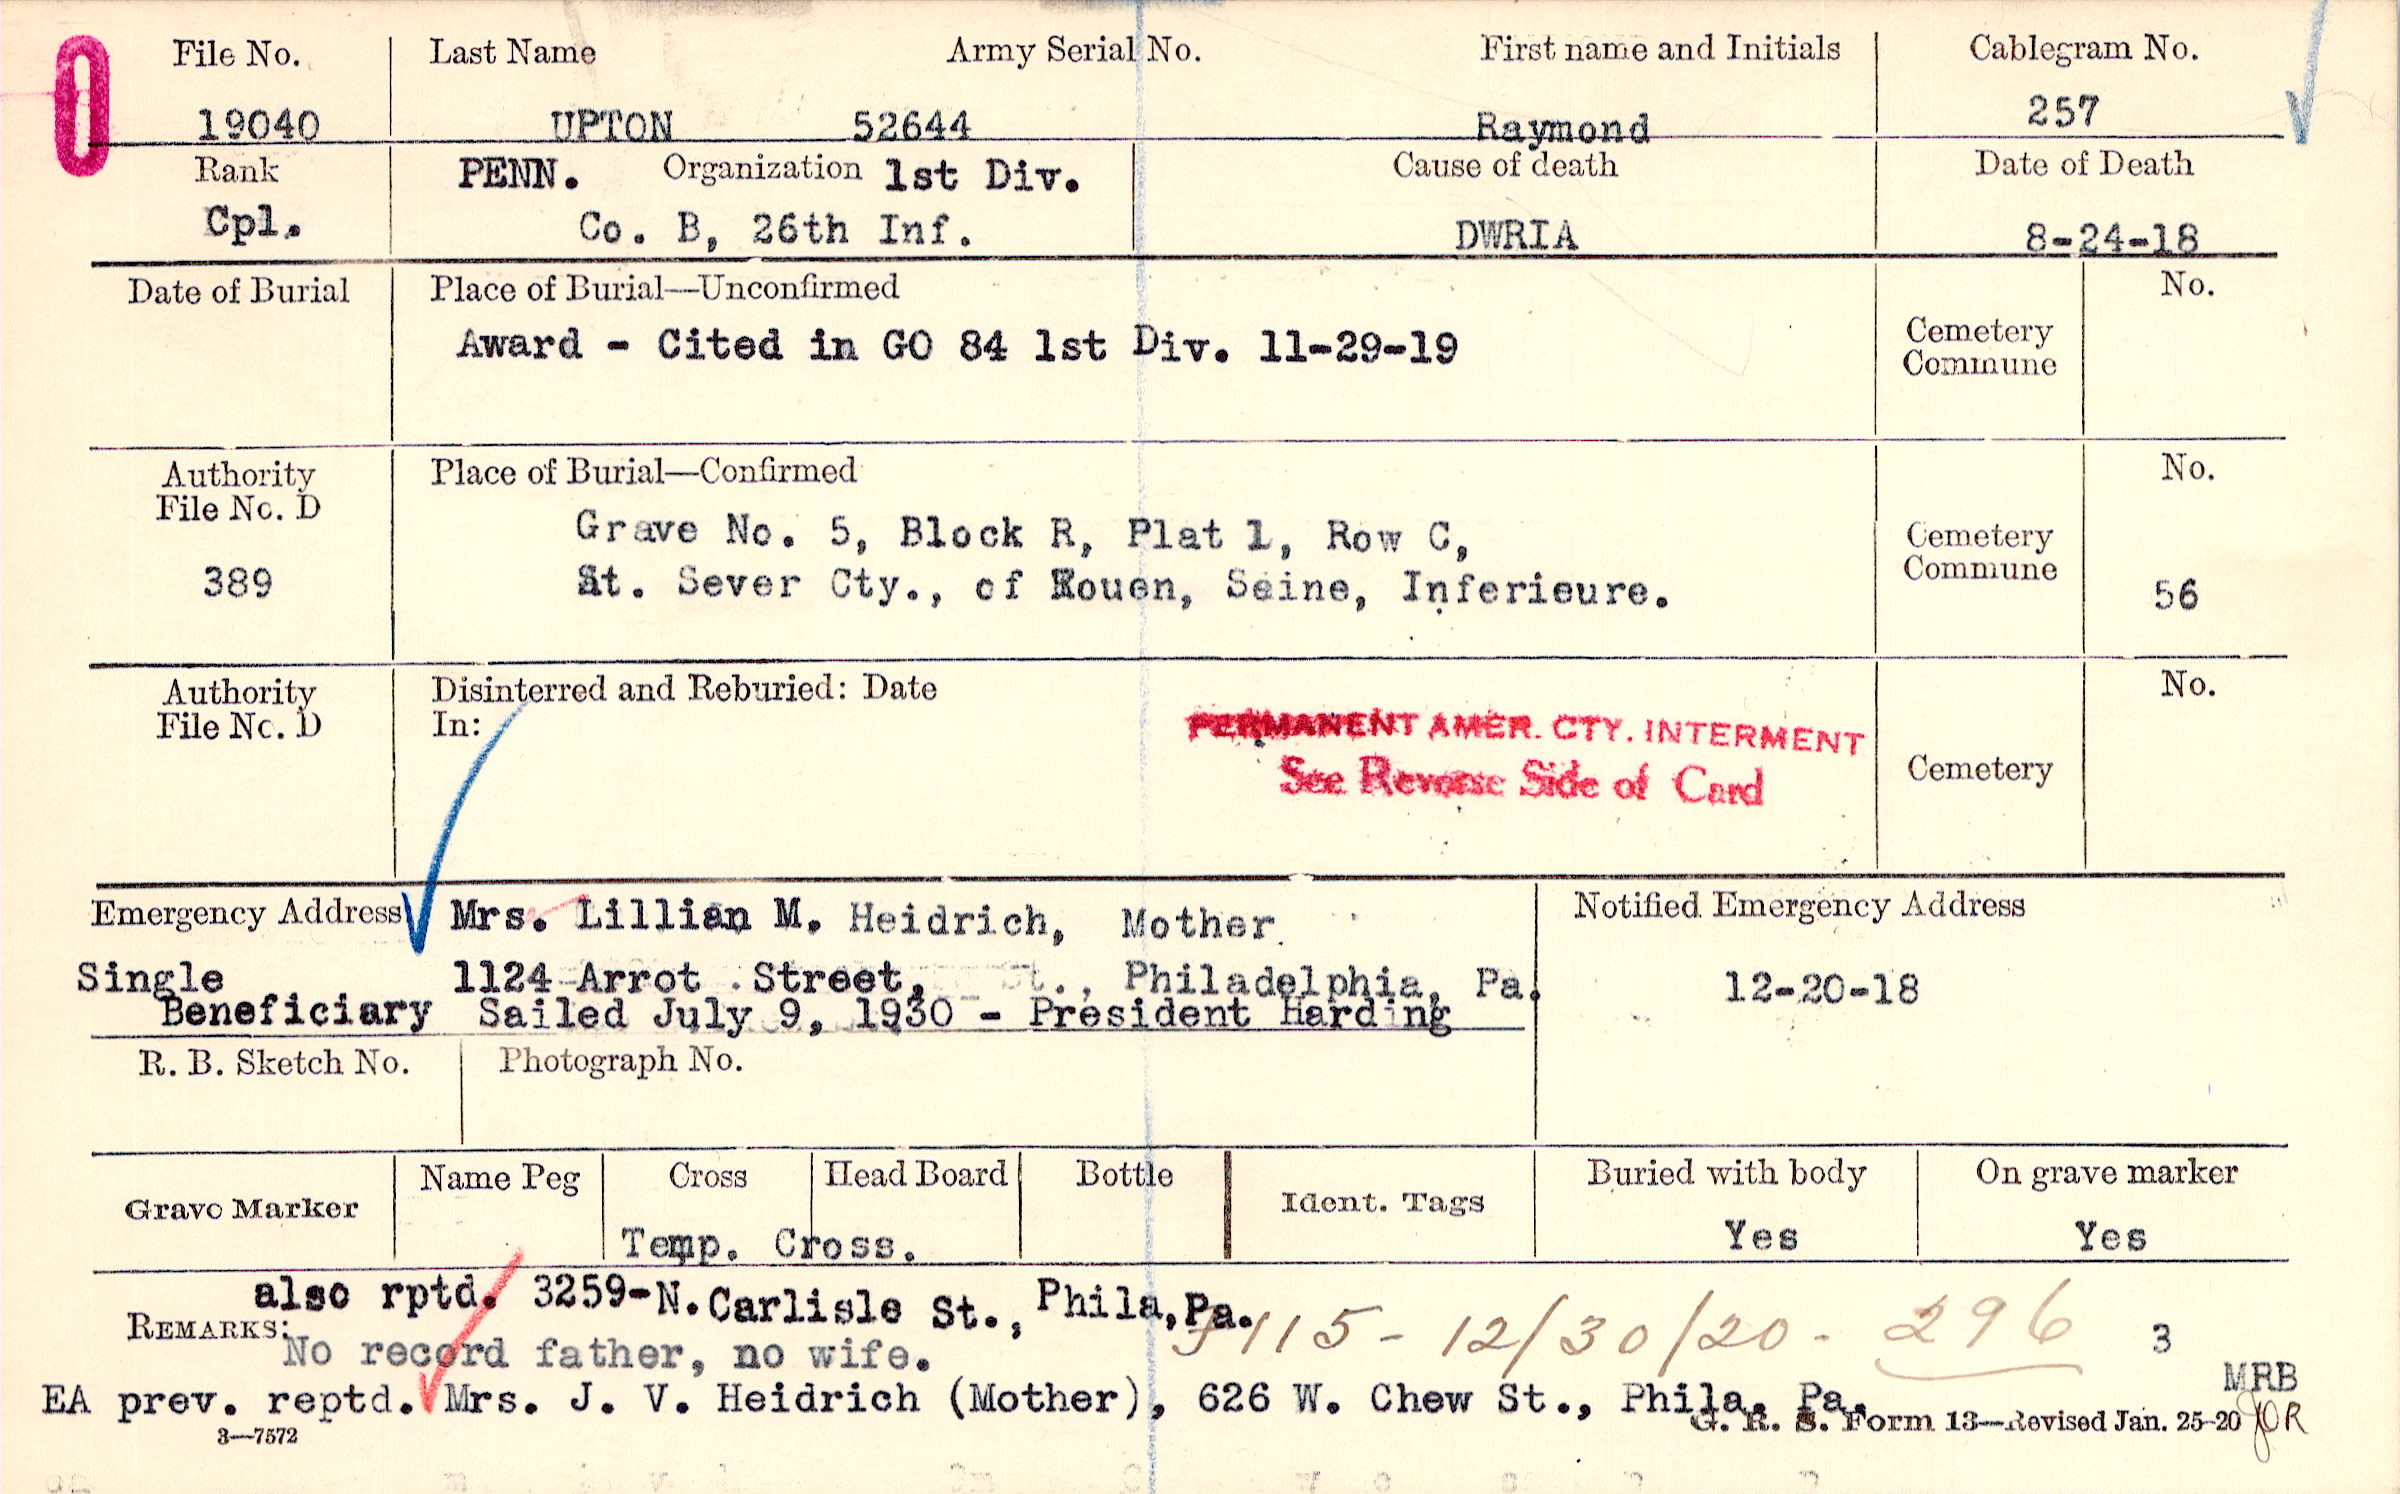 File No. Last Name Army Serial No. First name and Initials Cablegram No.
19040 UPTON 52644 Raymond 257
Rank PENN. Organization 1st Div. Cause of death Date of Death
Cpl. Co. B, 26th Inf. DWRIA 8-24-18
Date of Burial Place of Burial—Unconfirmed No.
Award - Cited in GO 84 1st Div. 11-29-19 Cemetery
Commune
Authority Place of Burial—Confirmed No.
File No. D
Grave No. 5, Block R, Plat 1, Row C, Cemetery
389 St. Sever Cty., of Rouen, Seine, Inferieure. Commune 56
Authority Disinterred and Reburied: Date No.
File No. D In:
PERMANENT AMER. CTY. INTERMENT
See Reverse Side of Card Cemetery
Emergency Address Mrs. Lillian M. Heidrich, Mother Notified Emergency Address
Single 1124 Arrot Street, Philadelphia, Pa. 12-20-18
Beneficiary Sailed July 9, 1930 - President Harding
R. B. Sketch No. Photograph No.
Grave Marker Name Peg Cross Head Board Bottle Ident. Tags Buried with body On grave marker
Temp. Cross. Yes Yes
also rptd. 3259-N. Carlisle St., Phila, Pa.
REMARKS: 115 - 12/30/20 - 296 3
No record father, no wife. MRB
EA prev. reptd. Mrs. J. V. Heidrich (Mother), 626 W. Chew St., Phila. Pa.
3—7572 G. R. S. Form 13—Revised Jan. 25-20 JOR